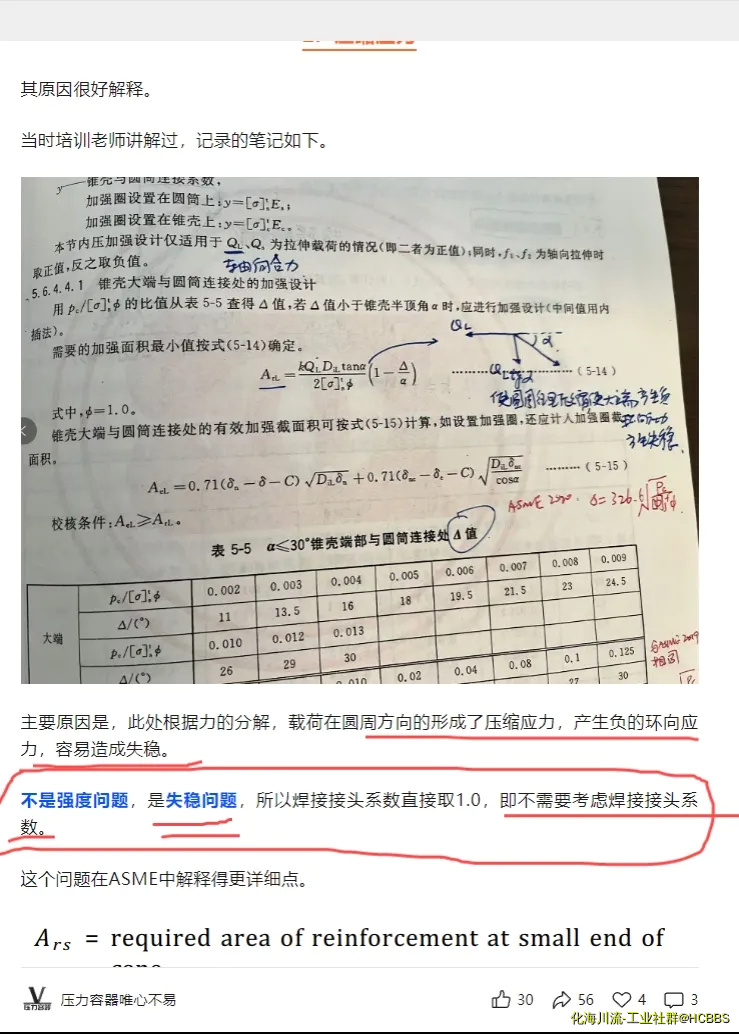 其原因很好解释。
当时培训老师讲解过，记录的笔记如下。
y——锥壳与圆筒连接系数，
加强圈设置在圆筒上：y=[σ]ᵗₛEₛ；
加强圈设置在锥壳上：y=[σ]ᵗ꜀E꜀。
本节内压加强设计仅适用于 Q_L、Qₛ 为拉伸载荷的情况（即二者为正值）；同时，f₁、f₂ 为轴向拉伸时
取正值，反之取负值。
轴向合力
5.6.4.4.1 锥壳大端与圆筒连接处的加强设计
用 p_c/[σ]ᵗₛφ 的比值从表 5-5 查得 Δ 值，若 Δ 值小于锥壳半顶角 α 时，应进行加强设计（中间值用内
插法）。
需要的加强面积最小值按式(5-14)确定。
Q_L
α
A_rL = kQ_L D_iL tanα / 2[σ]ᵗₛφ (1 − Δ/α) ………………（5-14）
Q_L tgα
式中，φ=1.0。
锥壳大端与圆筒连接处的有效加强截面积可按式(5-15)计算，如设置加强圈，还应计入加强圈截
面积。
A_eL=0.71(δₙ−δ−C) √(D_iL δₙ) +0.71(δₙc−δ_c−C) √(D_iL δₙc / cosα) ………（5-15）
校核条件：A_eL⩾A_rL。
表 5-5 α≤30°锥壳端部与圆筒连接处 Δ 值
大端
p_c/[σ]ᵗₛφ 0.002 0.003 0.004 0.005 0.006 0.007 0.008 0.009
Δ/(°) 11 13.5 16 18 19.5 21.5 23 24.5
p_c/[σ]ᵗₛφ 0.010 0.012 0.013
Δ/(°) 26 29 30
0.010 0.02 0.04 0.08 0.1 0.125
27 30
主要原因是，此处根据力的分解，载荷在圆周方向的形成了压缩应力，产生负的环向应
力，容易造成失稳。
不是强度问题，是失稳问题，所以焊接接头系数直接取1.0，即不需要考虑焊接接头系
数。
这个问题在ASME中解释得更详细点。
A_rs = required area of reinforcement at small end of
压力容器唯心不易
30 56 4 3
化海川流-工业社群@HCBBS